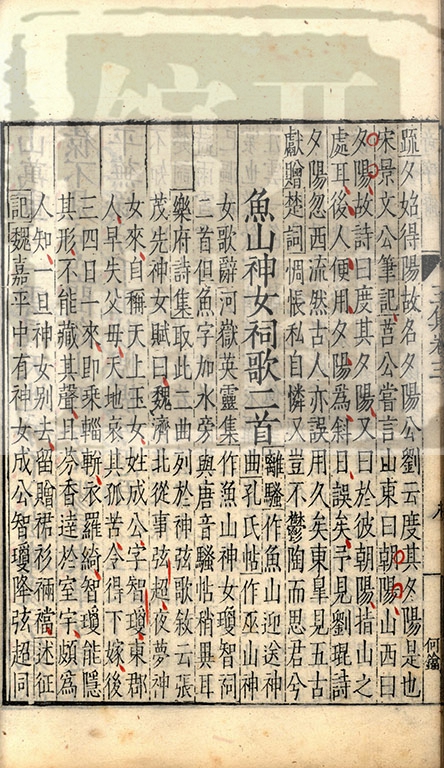 䟽夕始得陽故名夕陽公劉云度其夕陽是也
宋景文公筆記莒公嘗言山東曰朝陽山西曰
夕陽故詩曰度其夕陽又曰於彼朝陽指山之
處耳後人便用夕陽為斜日誤矣予見劉琨詩
夕陽忽西流然古人亦誤用久矣東皐見五古
獻贈楚詞惆悵私自憐又豈不鬱陶而思君兮
魚山神女祠歌二首離騷作魚山迎送神曲孔氏帖作巫山神
女歌辭河嶽英靈集作漁山神女瓊智祠
二首但魚字加水旁與唐音騷帖稍異耳
樂府詩集取此二曲列於神弦歌敘云張
茂先神女賦曰魏濟北從事弦超夜夢神
女來自稱天上玉女姓成公字智瓊東郡
人早失父母天地哀其孤苦令得下嫁後
三四日一來即乘輜軿衣羅綺智瓊能隱
其形不能藏其聲且芬香達於室宇頗為
人知一旦神女別去留贈裙衫裲襠述征
記魏嘉平中有神女成公智瓊降弦超同
何鑰